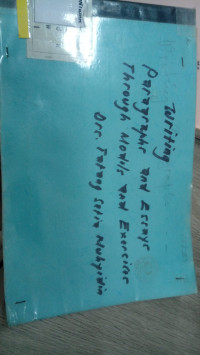 Writing
Paragraphs and Essays
Through Models and Exercises
Drs. Tatang Setia Muhyidin